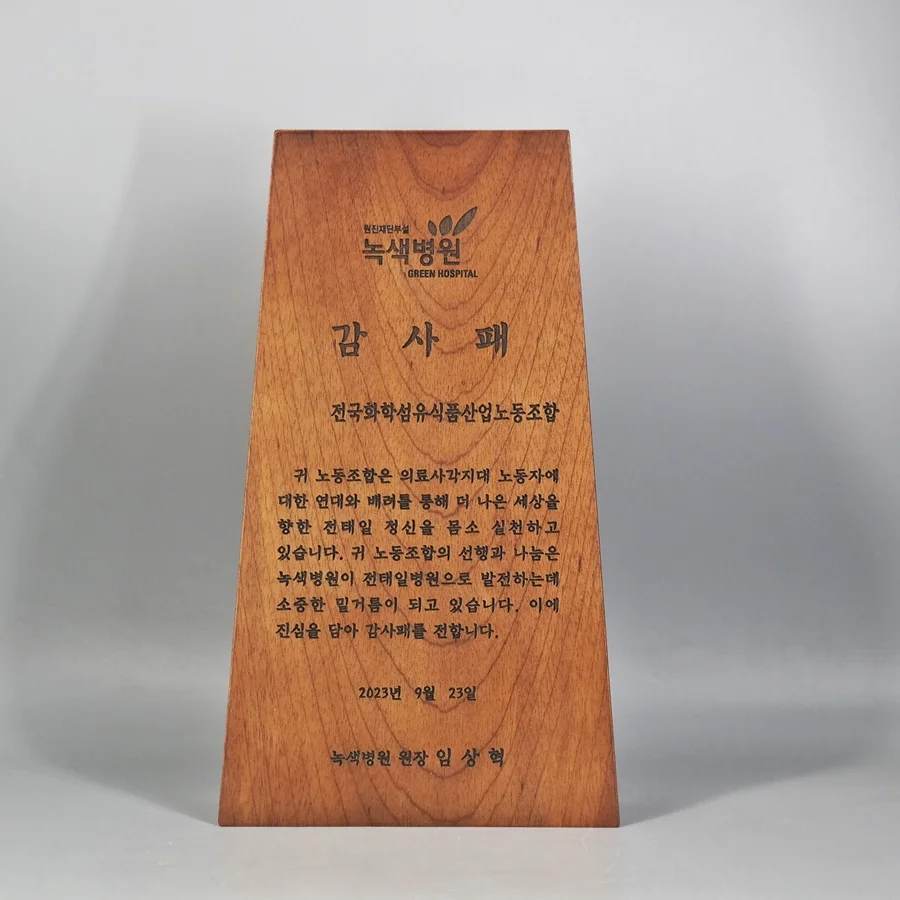 원진재단부설
녹색병원
GREEN HOSPITAL
감 사 패
전국화학섬유식품산업노동조합
귀 노동조합은 의료사각지대 노동자에
대한 연대와 배려를 통해 더 나은 세상을
향한 전태일 정신을 몸소 실천하고
있습니다. 귀 노동조합의 선행과 나눔은
녹색병원이 전태일병원으로 발전하는데
소중한 밑거름이 되고 있습니다. 이에
진심을 담아 감사패를 전합니다.
2023년 9월 23일
녹색병원 원장 임 상 혁